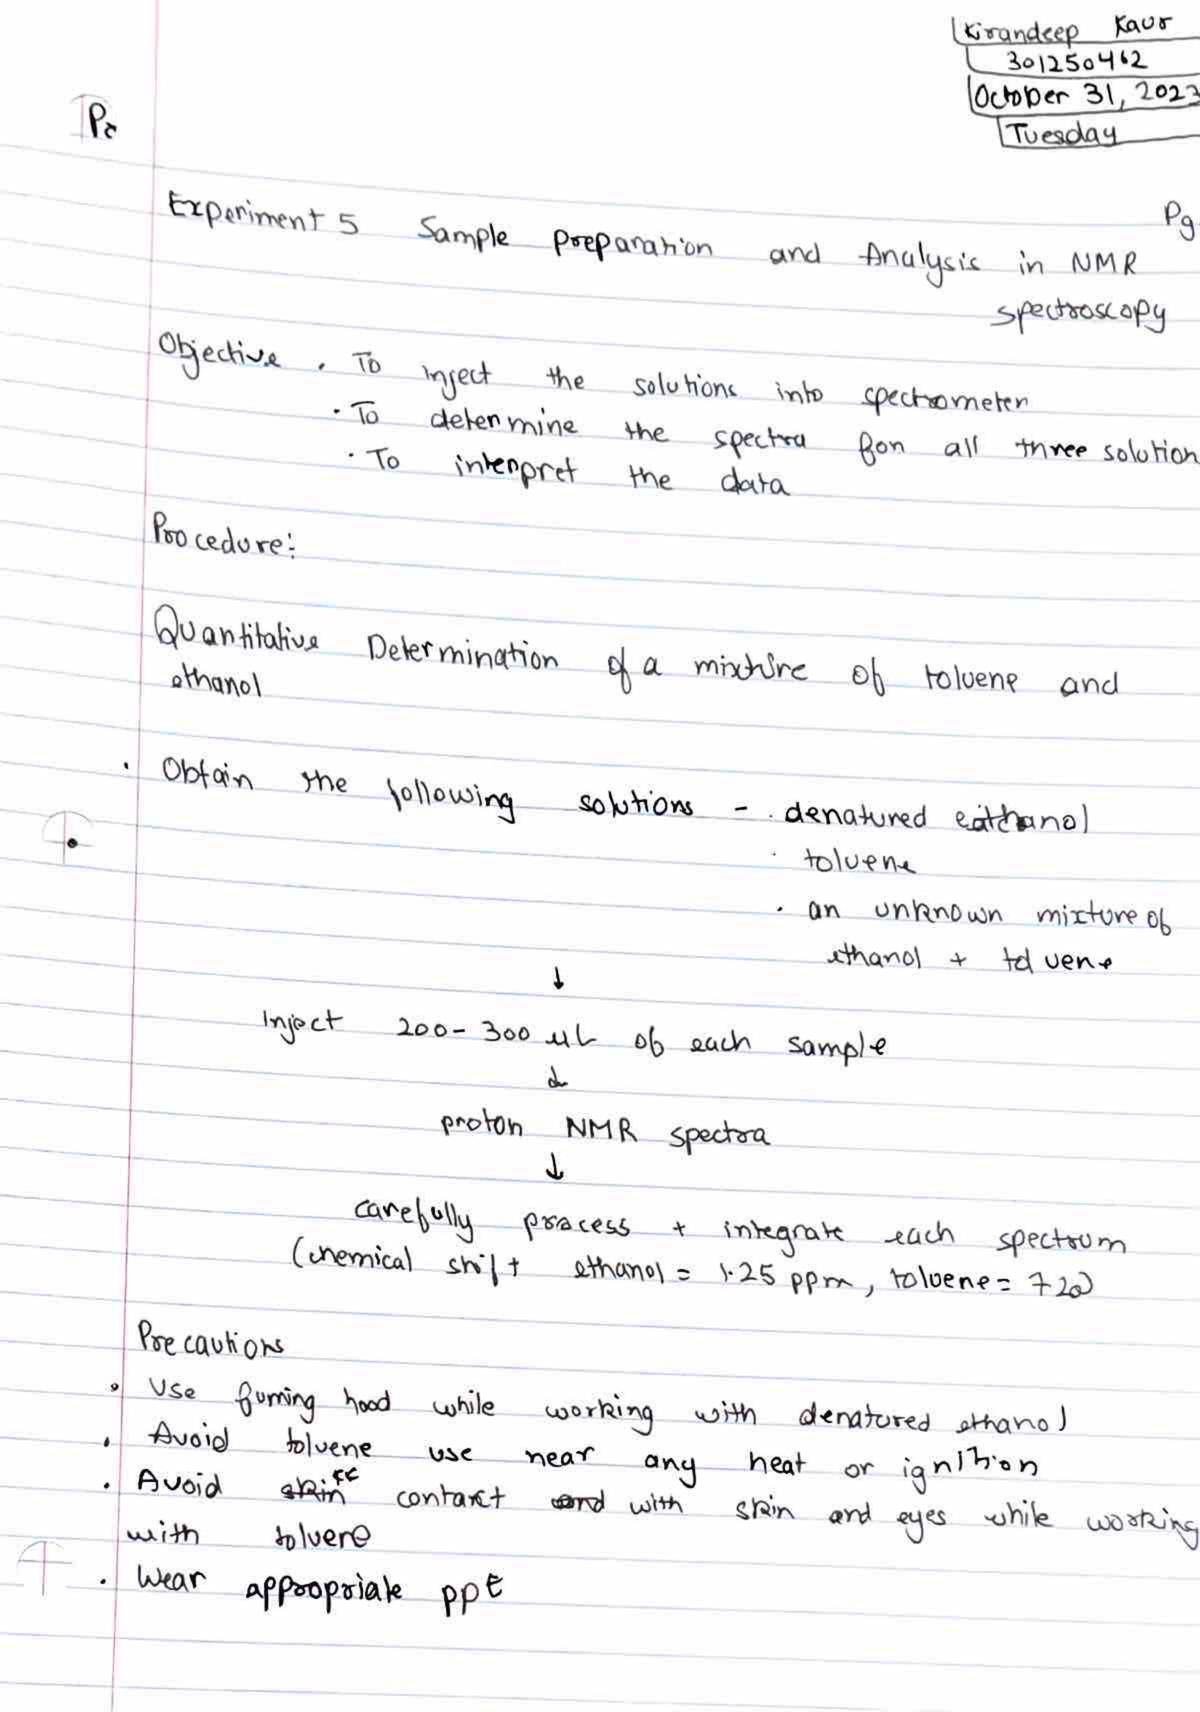 Kirandeep Kaur
301250462
October 31, 2023
Tuesday
Pg
Experiment 5 Sample preparation and Analysis in NMR
spectroscopy
Objective . To inject the solutions into spectrometer
· To determine the spectra for all three solution
· To interpret the data
Procedure:
Quantitative Determination of a mixture of toluene and
ethanol
· Obtain the following solutions - · denatured ethanol
· toluene
· an unknown mixture of
ethanol + toluene
↓
Inject 200-300 uL of each sample
↓
proton NMR spectra
↓
carefully process + integrate each spectrum
(chemical shift ethanol = 1.25 ppm, toluene =
Precautions
· Use fuming hood while working with denatured ethanol
· Avoid toluene use near any heat or ignition
· Avoid contact with skin and eyes while working
with toluene
· Wear appropriate ppE